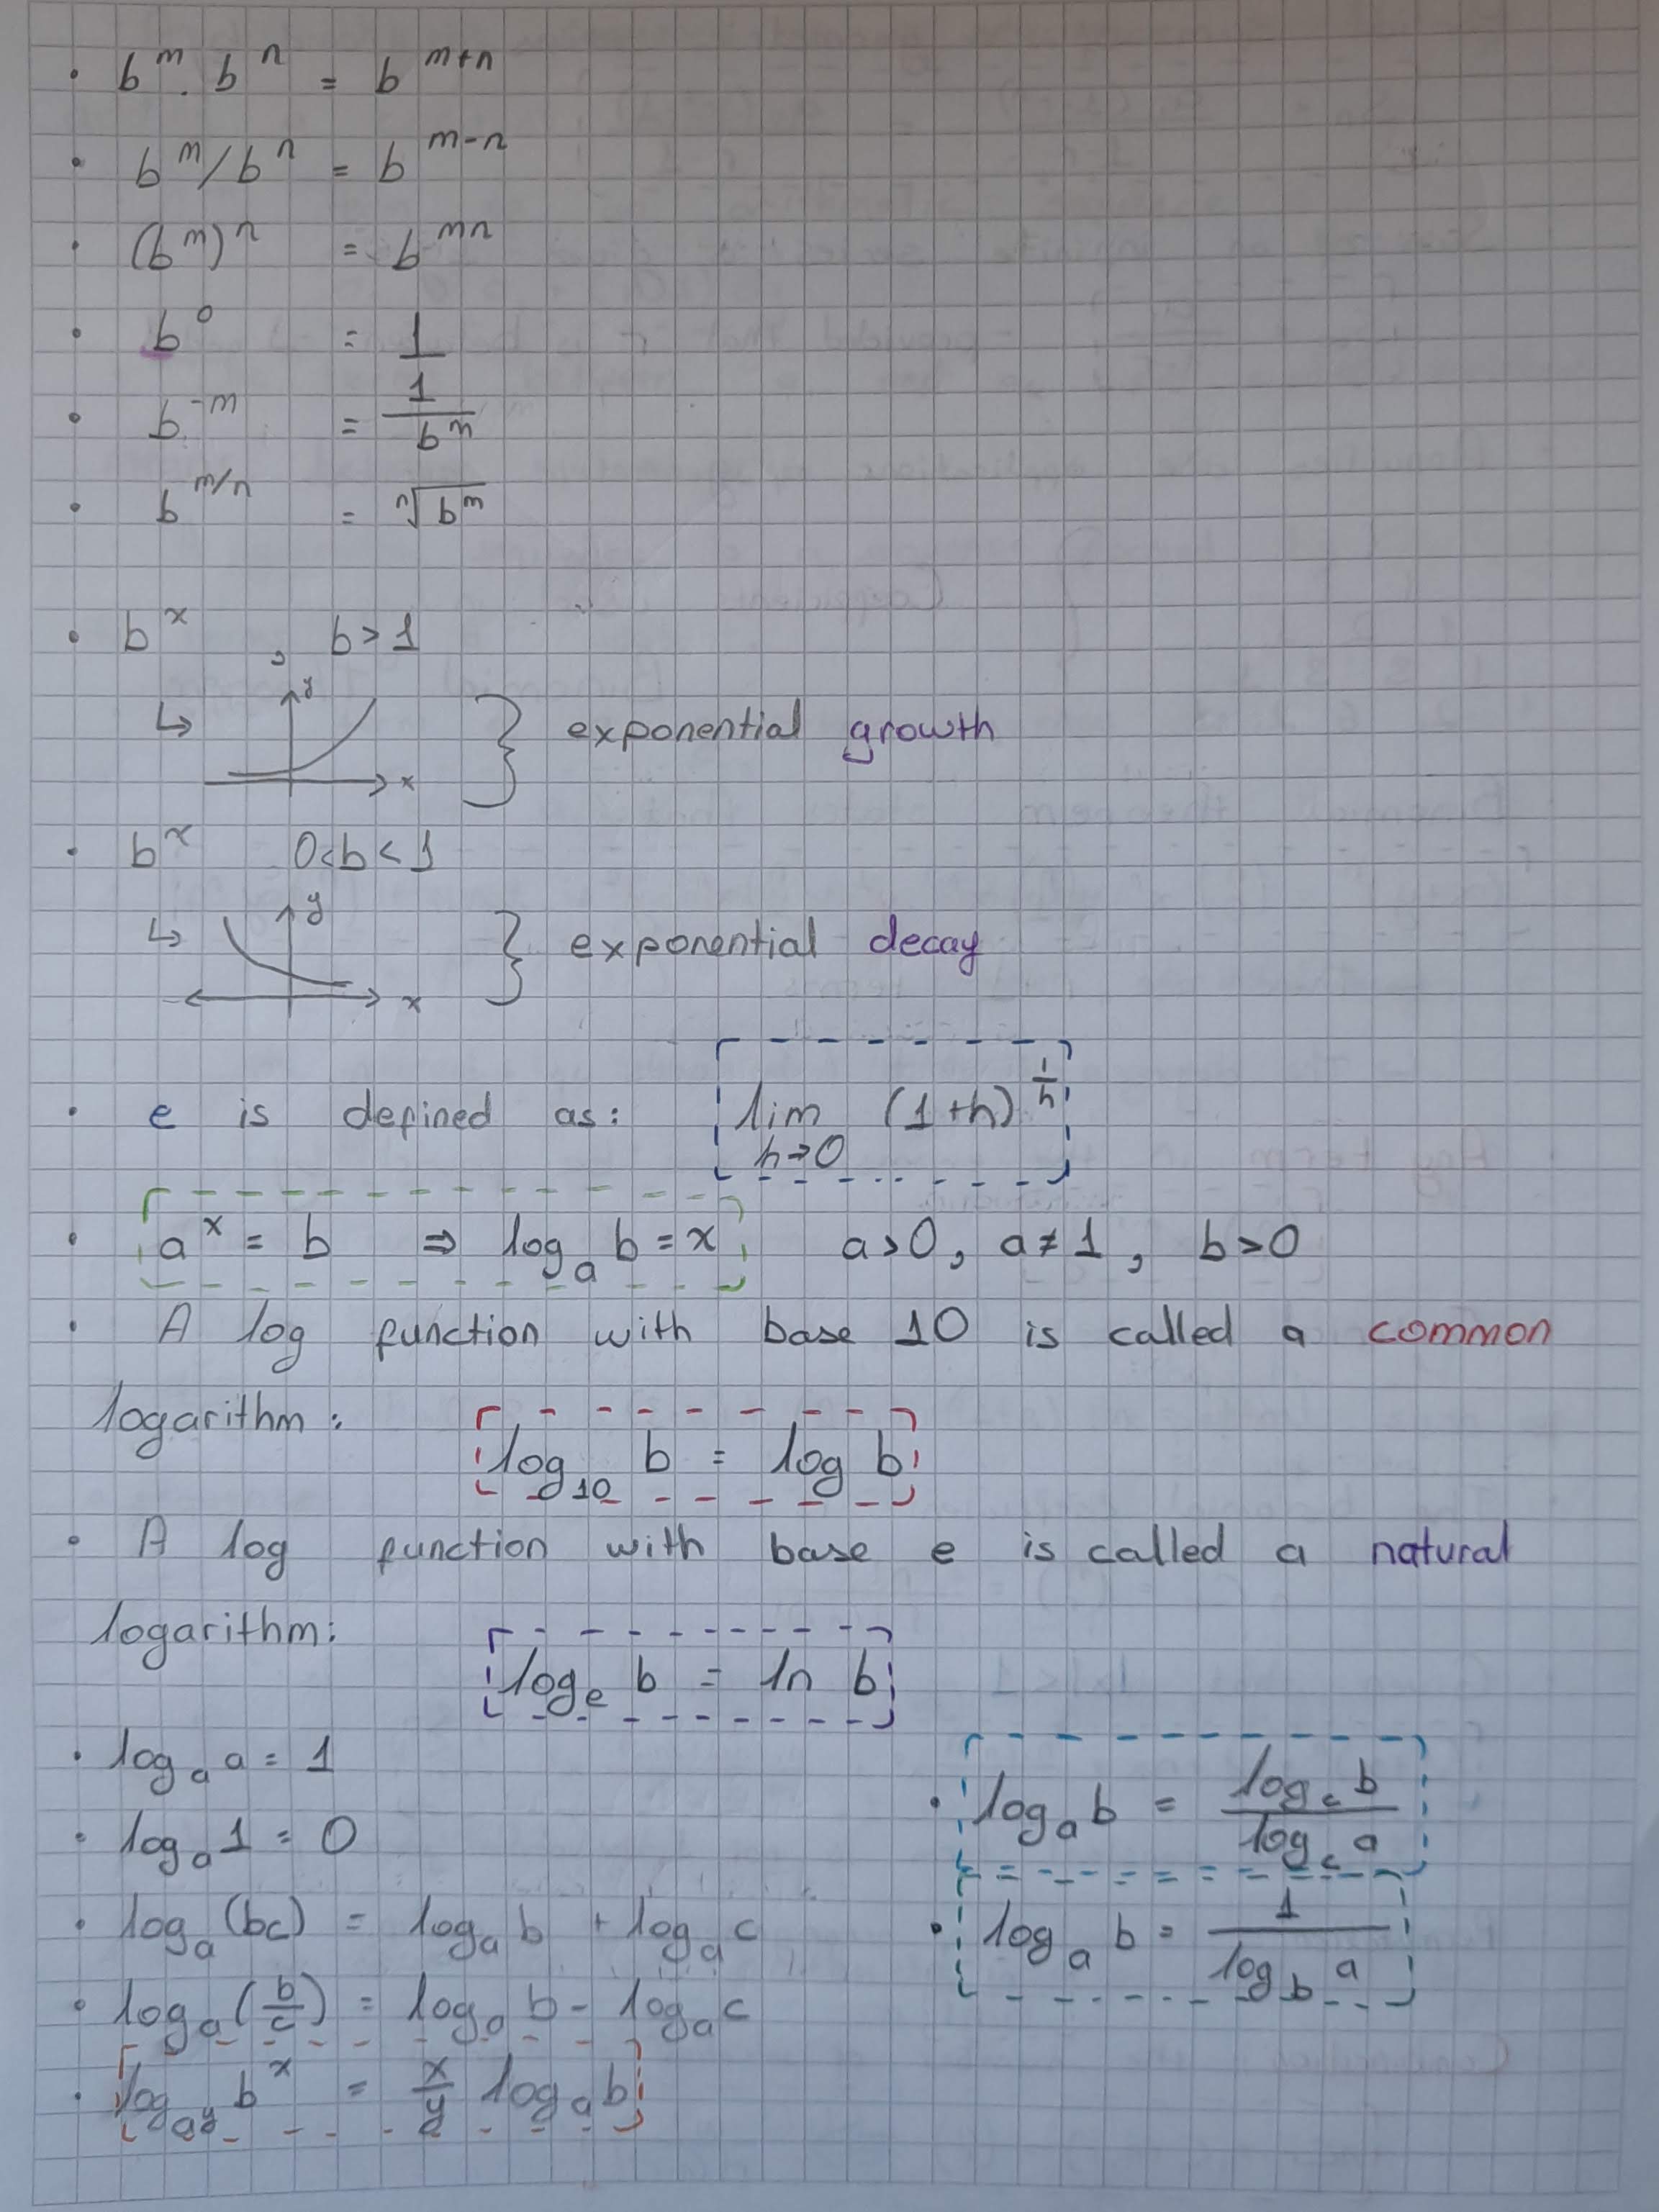 • b^m · b^n = b^(m+n)
• b^m / b^n = b^(m-n)
• (b^m)^n = b^(mn)
• b^0 = 1
• b^(-m) = 1/b^m
• b^(m/n) = ⁿ√(b^m)
• b^x , b > 1
↳ y x } exponential growth
• b^x 0<b<1
↳ y x } exponential decay
• e is defined as: lim h→0 (1+h)^(1/h)
• a^x = b ⇒ log_a b = x a>0, a≠1, b>0
• A log function with base 10 is called a common
logarithm: log_10 b = log b
• A log function with base e is called a natural
logarithm: log_e b = ln b
• log_a a = 1
• log_a 1 = 0
• log_a (bc) = log_a b + log_a c
• log_a (b/c) = log_a b - log_a c
• log_(a^y) b^x = x/y log_a b
• log_a b = log_c b / log_c a
• log_a b = 1 / log_b a